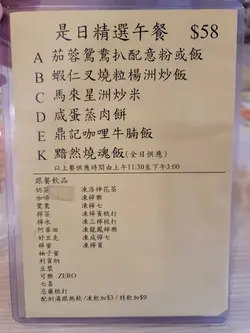 是日精選午餐 $58
A 茄蓉鴛鴦扒配意粉或飯
B 蝦仁叉燒粒楊洲炒飯
C 馬來星洲炒米
D 咸蛋蒸肉餅
E 鼎記咖哩牛腩飯
K 黯然燒魂飯(全日供應)
以上餐供應時間由上午11:30至下午3:00
跟餐飲品
奶茶 凍洛神花茶
咖啡 凍檸樂
鴛鴦 凍檸七
檸茶 凍檸賓梳打
檸水 凍三檸梳打
阿華田 凍龍鳳檸樂
好立克 凍咸檸七
檸蜜 凍檸賓
柚子蜜
利賓納
豆漿
可樂 ZERO
七喜
忌廉梳打
配例湯跟熱飲/凍飲加$3/特飲加$9